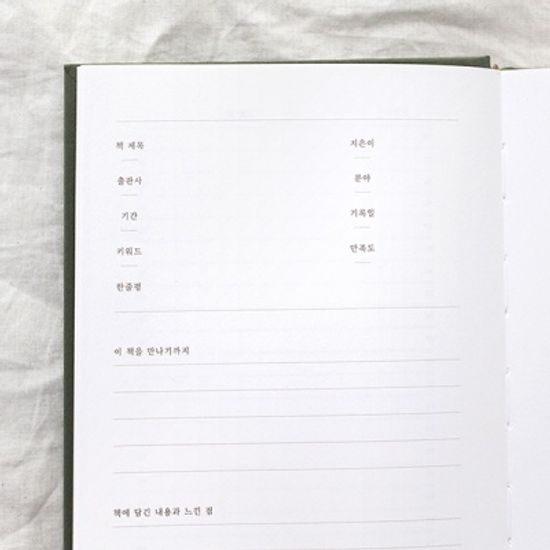 책 제목 지은이
출판사 분야
기간 기록일
키워드 만족도
한줄평
이 책을 만나기까지
책에 담긴 내용과 느낀 점